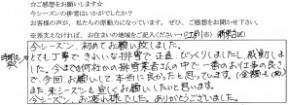 ☆ご感想をお願いします☆
今シーズンの排雪はいかがでしたか？
お客様の声が、私たちの原動力になっています。ぜひ、ご感想をお聞かせ下さい。
※差支えなければ、お住まいの地域をご記入ください→
今シーズン、初めてお願い致しました。
とても丁寧できれいな排雪で正直びっくりしました。感動しま
した。今まで何社かの排雪業者さんの中で一番のお仕事の良さ
で、今回お願いして本当に良かったと思っています。(金額も)
また来シーズンも宜しくお願いしたいと思います。
今シーズン、お疲れ様でした。ありがとうございました。